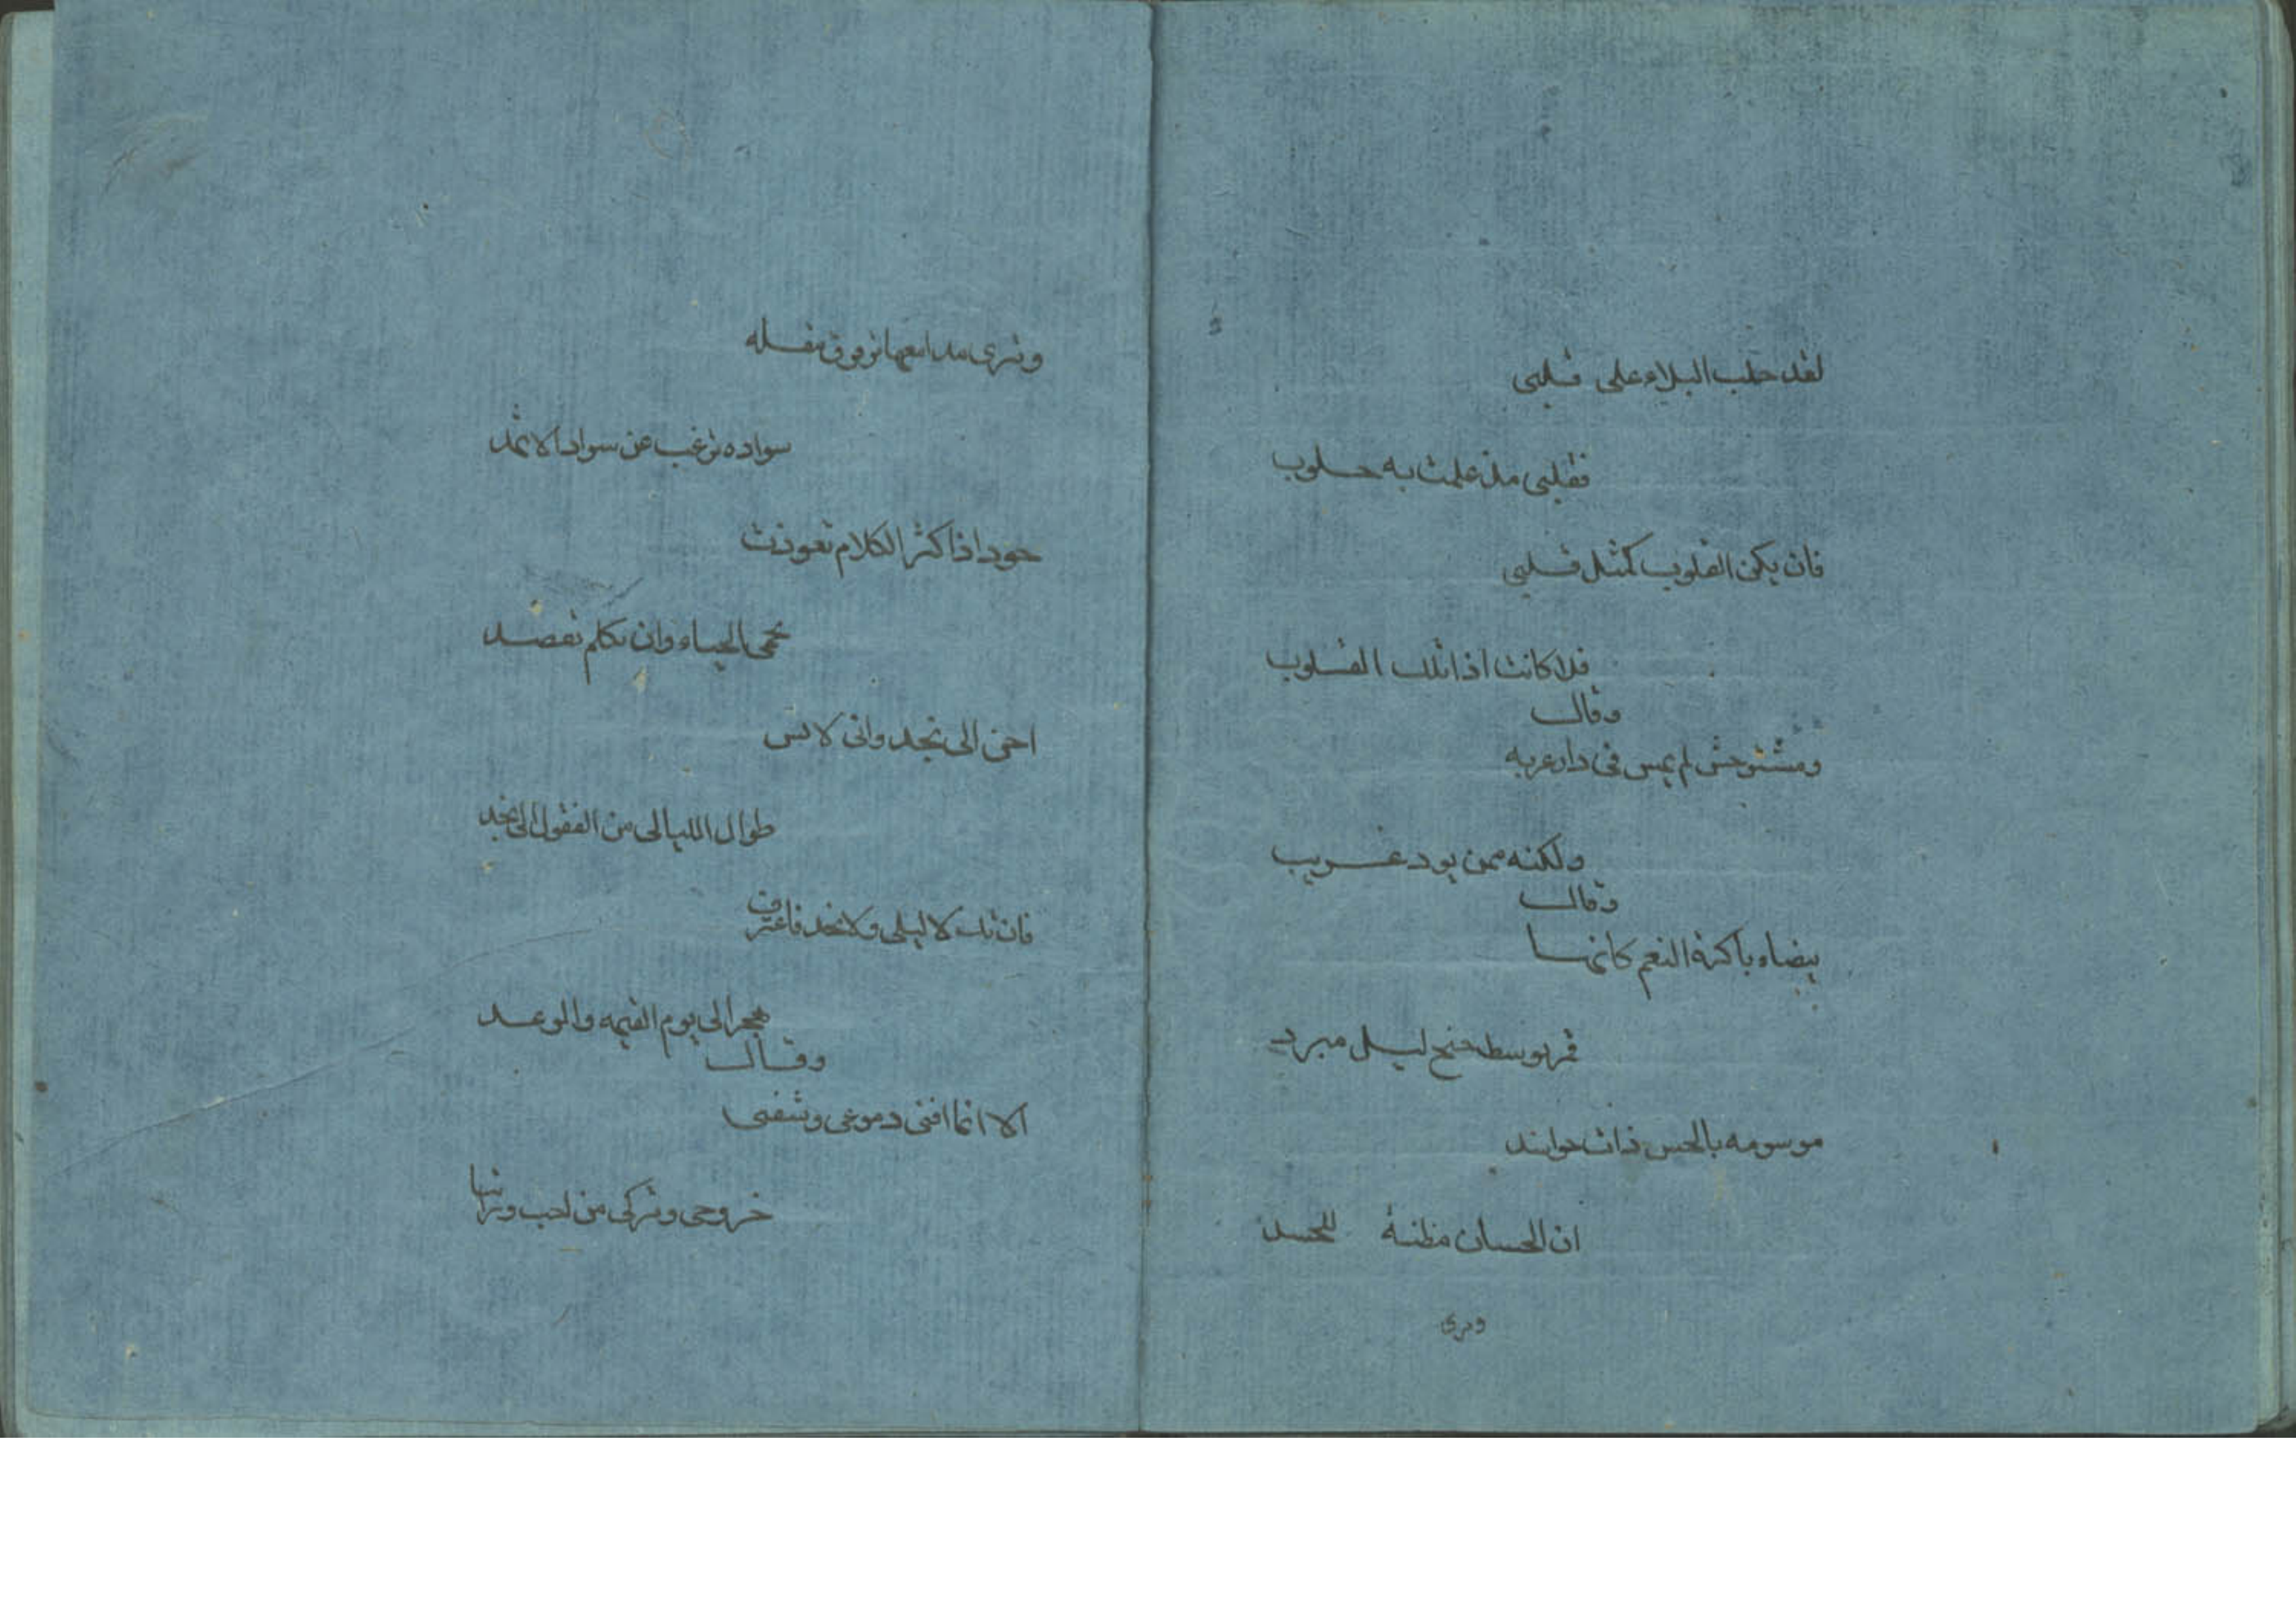 لقد جلب البلاء على قلبى
فقلبى مذ علمت به جلوب
فان يكن القلوب كمثل قلبى
فلا كانت اذا تلك القلوب
وقال
ومستوحش لم يمس فى دار غربه
ولكنه ممن يود غريب
وقال
بيضاء باكرة النعم كانها
قمر توسط جنح ليل مبرد
موسومه بالحسن ذات حواسد
ان الحسان مظنة للحسد
وترى
وترى مدامعها ترقرق مقله
سواده ترغب عن سواد الاثمد
خود اذا كثر الكلام تعوذت
بحمى الحياء وان تكلم تقصد
احن الى نجد وانى لايس
طوال الليالى من القفول الى نجد
فان تك لا ليلى ولا نجد فاعترف
بهجر الى يوم القيمه والوعد
وقال
الا انما افنى دموعى وشفنى
خروجى وتركى من احب ورائيا